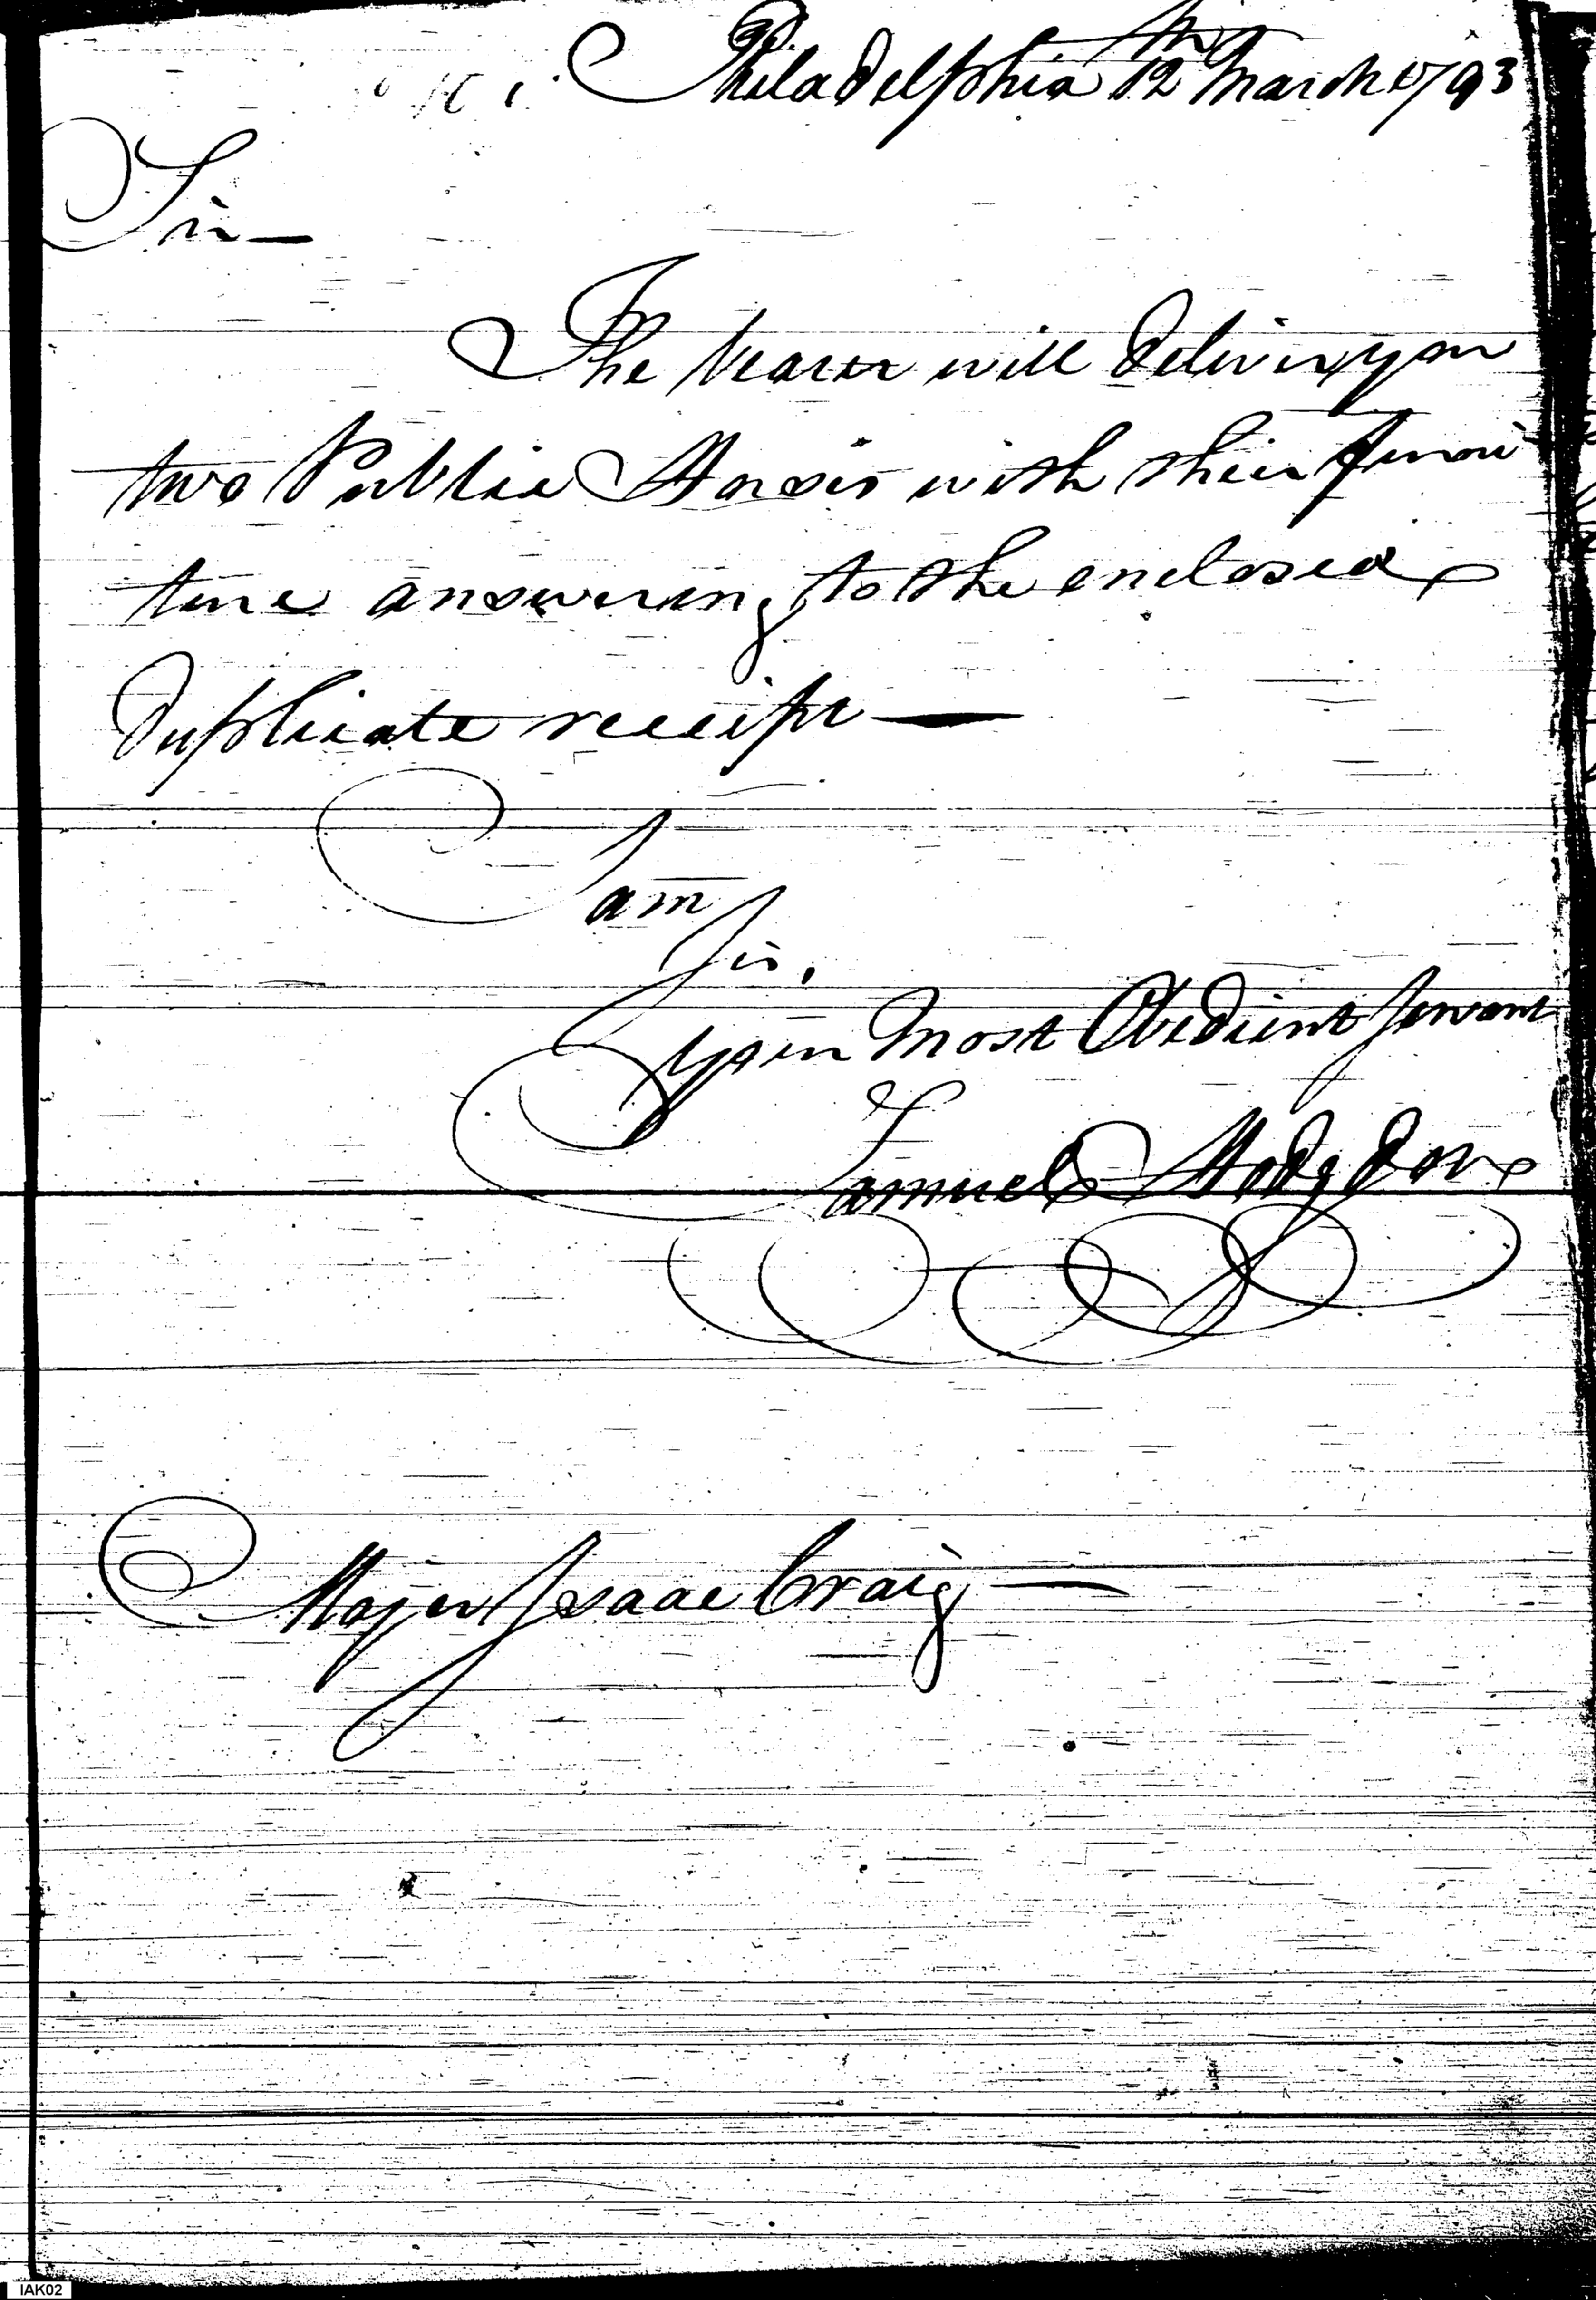 Philadelphia 12th March 1793
Sir—
The bearer will deliver you
two Public Horses with their furni
ture answering to the enclosed
duplicate receipt—
I am
Sir,
Your Most Obedient Servant
Samuel Hodgdon
Major Isaac Craig—
IAK02